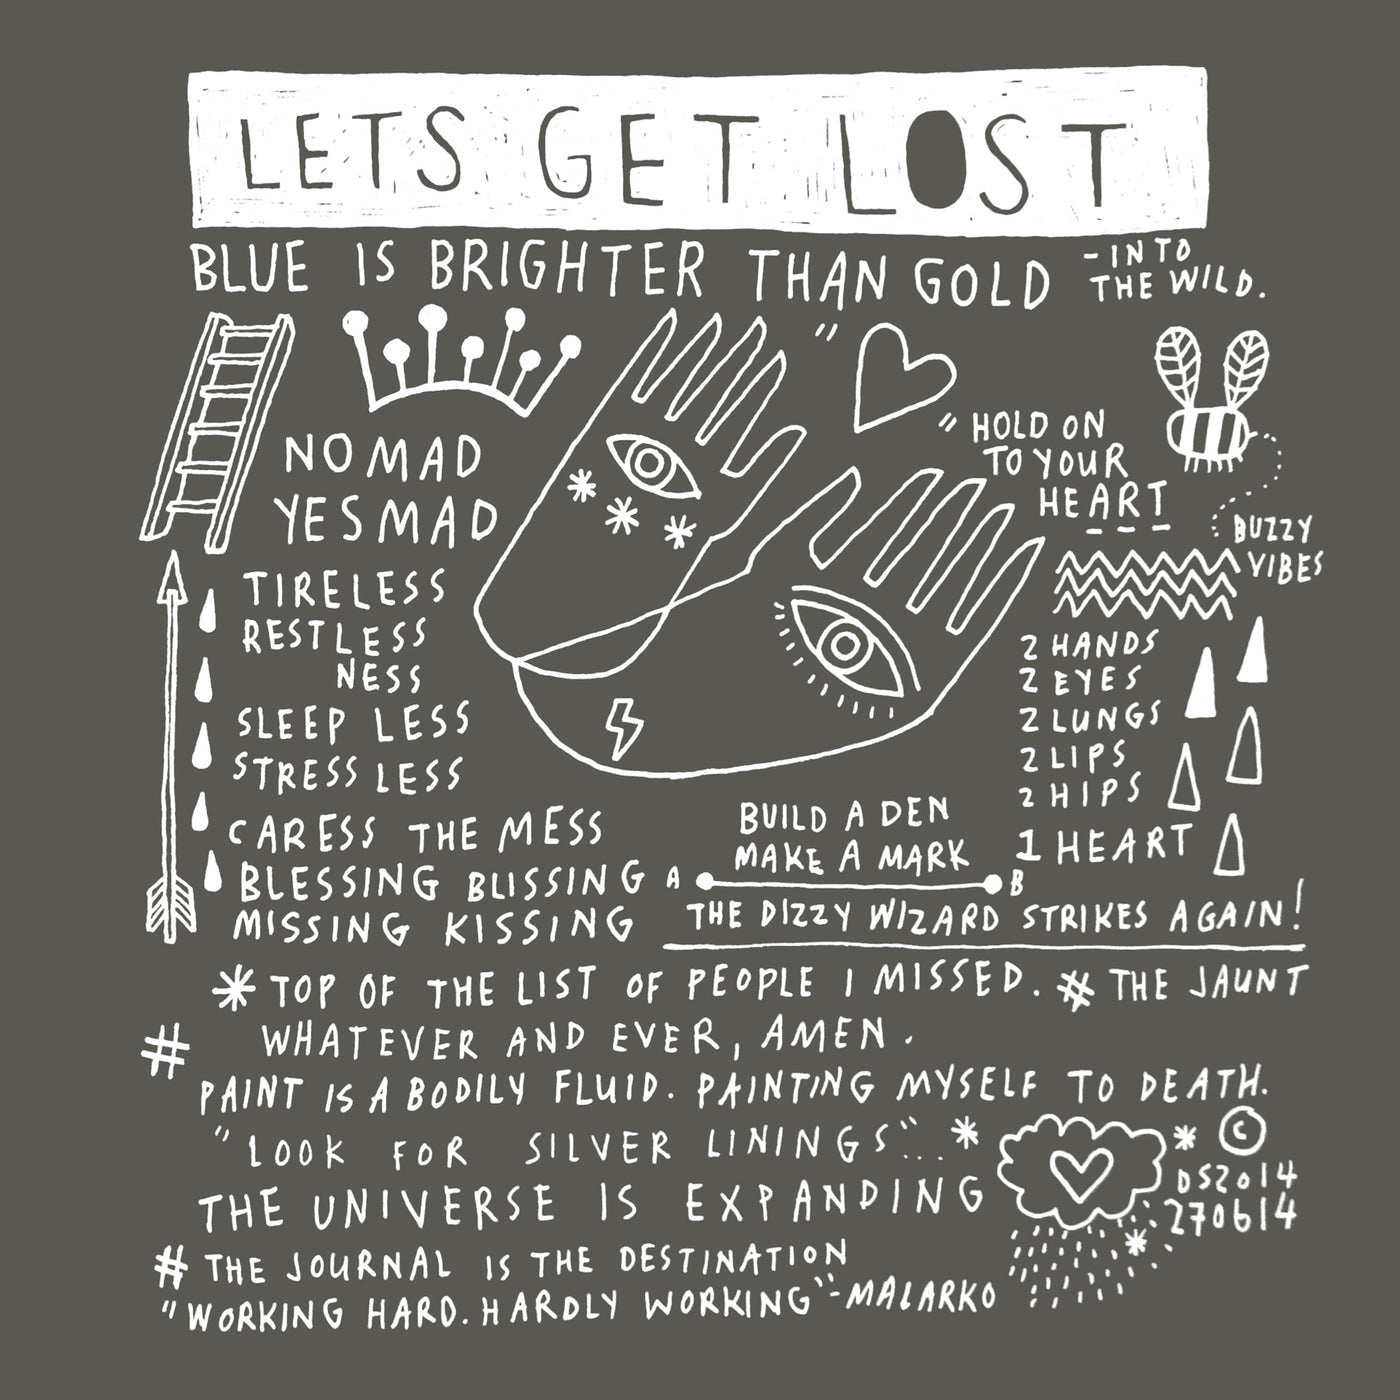 LETS GET LOST
BLUE IS BRIGHTER THAN GOLD - INTO
THE WILD.
"
" HOLD ON
TO YOUR
HEART
BUZZY
VIBES
NOMAD
YESMAD
TIRELESS
RESTLESS
NESS
SLEEP LESS
STRESS LESS
CARESS THE MESS
BLESSING BLISSING
MISSING KISSING
2 HANDS
2 EYES
2 LUNGS
2 LIPS
2 HIPS
1 HEART
BUILD A DEN
MAKE A MARK
A B
THE DIZZY WIZARD STRIKES AGAIN!
* TOP OF THE LIST OF PEOPLE I MISSED. # THE JAUNT
# WHATEVER AND EVER, AMEN.
PAINT IS A BODILY FLUID. PAINTING MYSELF TO DEATH.
"LOOK FOR SILVER LININGS"... *
THE UNIVERSE IS EXPANDING
* ©
DS2014
270614
# THE JOURNAL IS THE DESTINATION
"WORKING HARD. HARDLY WORKING" - MALARKO